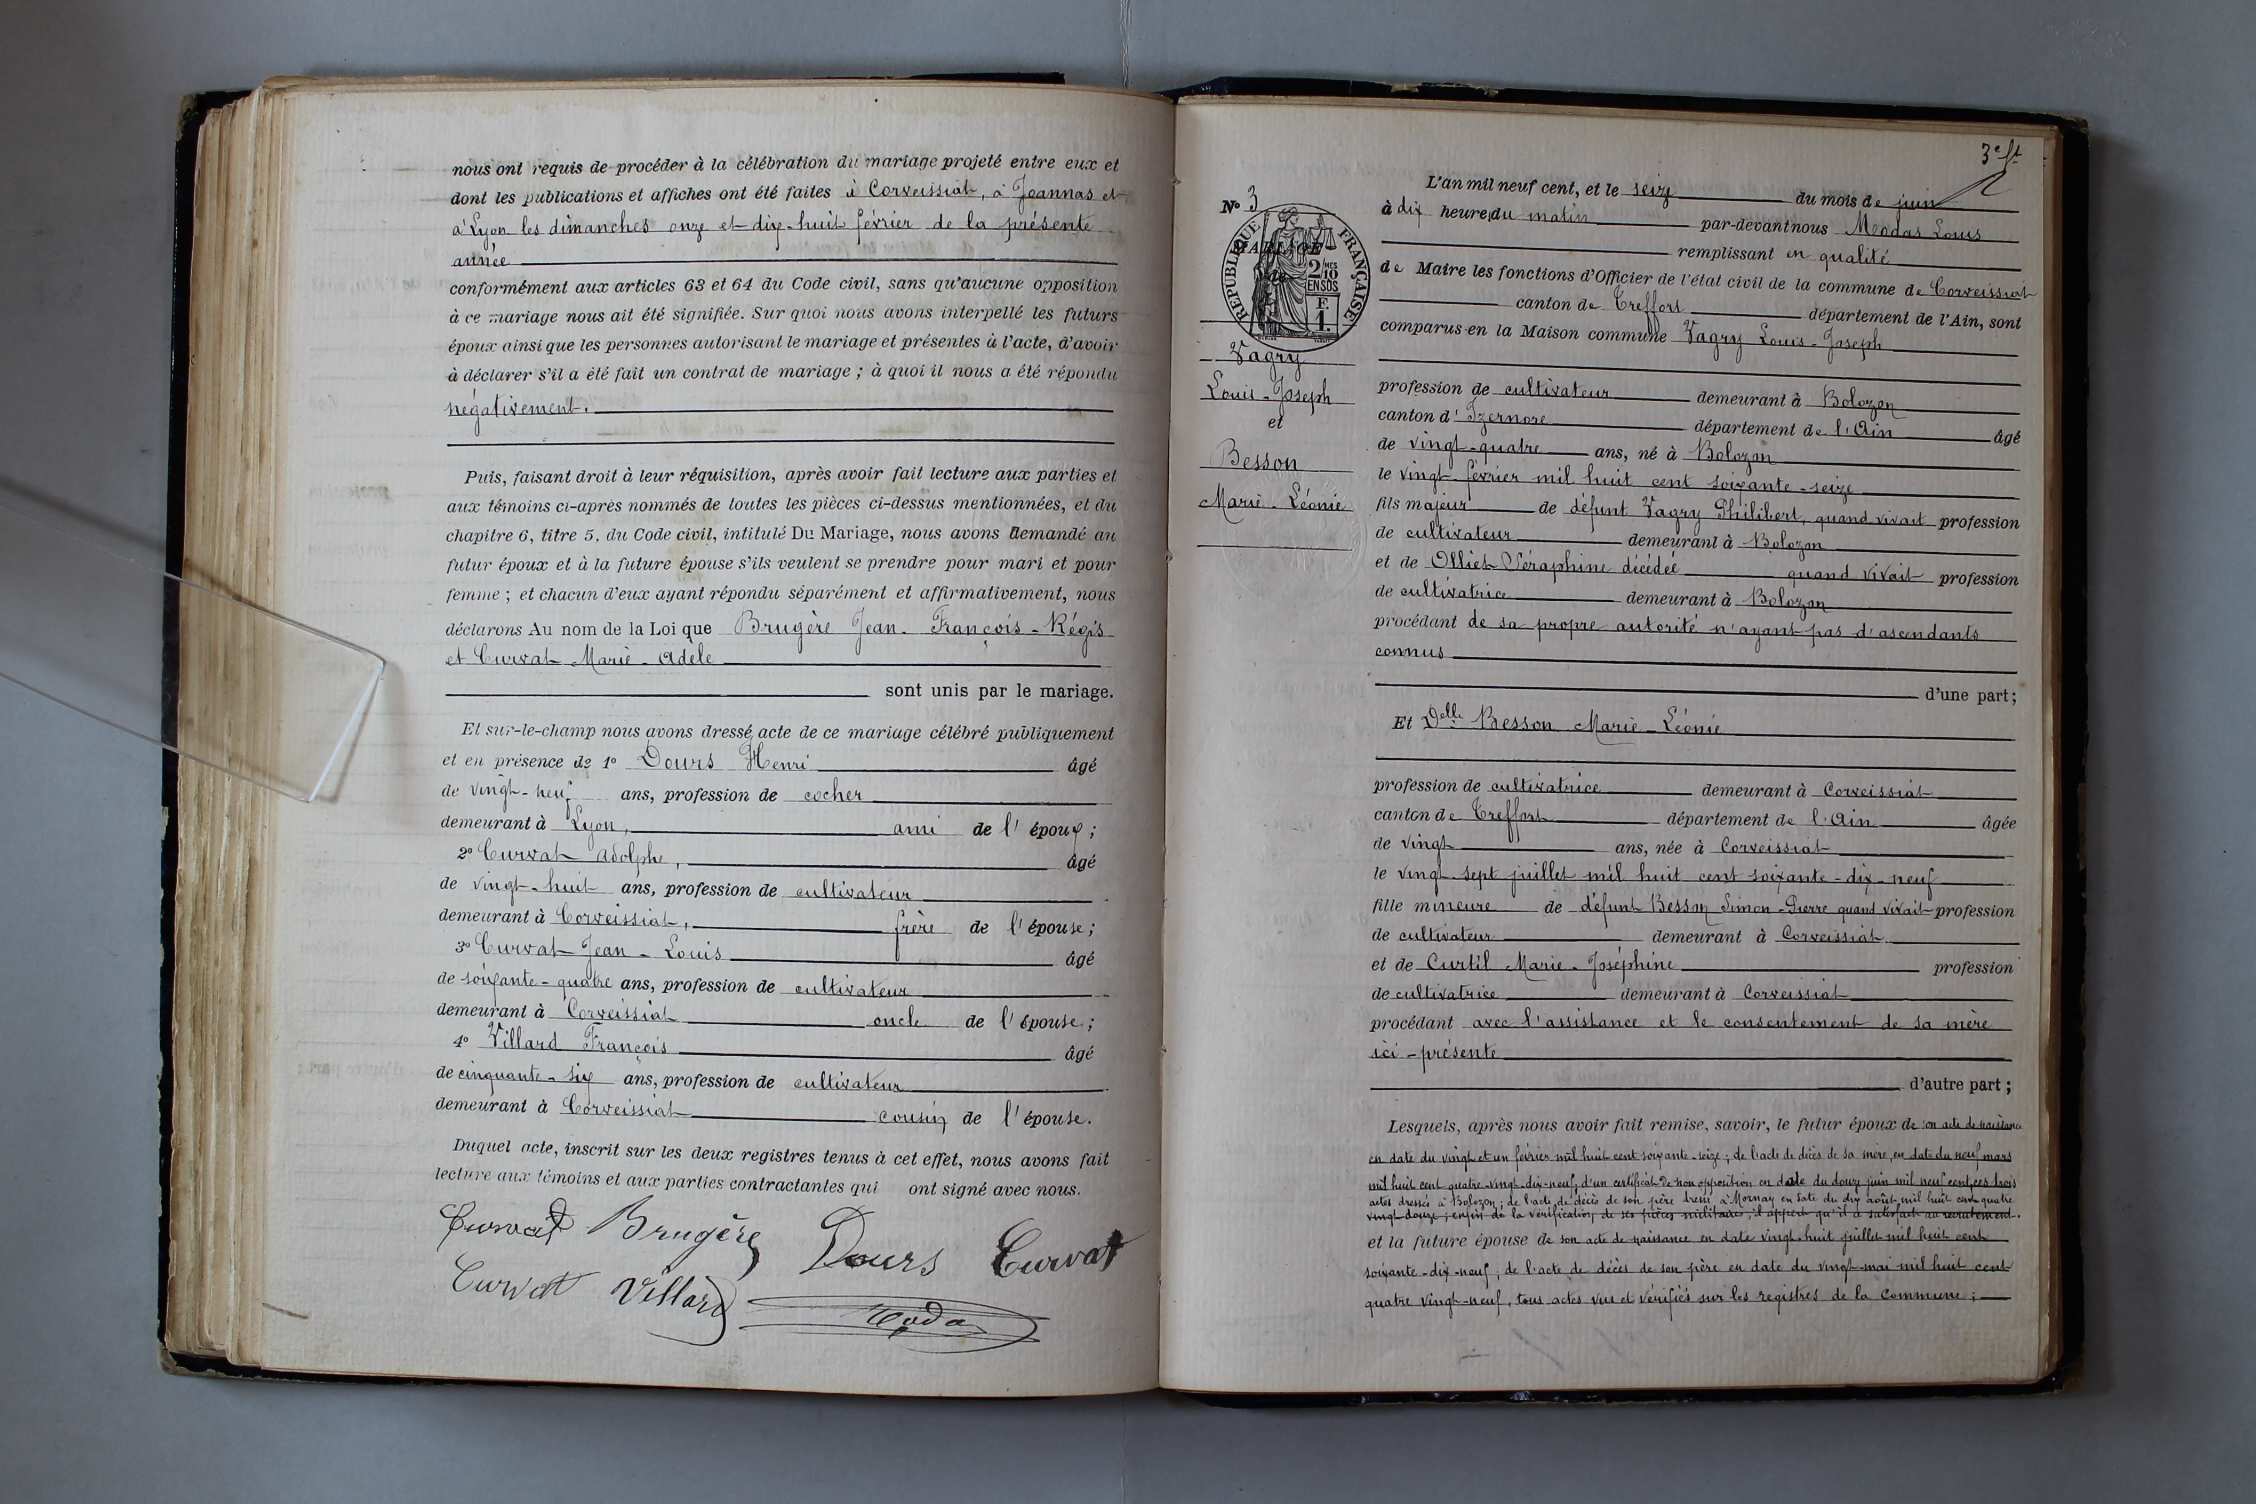 nous ont requis de procéder à la célébration du mariage projeté entre eux et
dont les publications et affiches ont été faites à Corveissiat, à Jeannas et
à Lyon les dimanches onze et dix-huit février de la présente
année
conformément aux articles 63 et 64 du Code civil, sans qu'aucune opposition
à ce mariage nous ait été signifiée. Sur quoi nous avons interpellé les futurs
époux ainsi que les personnes autorisant le mariage et présentes à l'acte, d'avoir
à déclarer s'il a été fait un contrat de mariage ; à quoi il nous a été répondu
négativement.
Puis, faisant droit à leur réquisition, après avoir fait lecture aux parties et
aux témoins ci-après nommés de toutes les pièces ci-dessus mentionnées, et du
chapitre 6, titre 5, du Code civil, intitulé Du Mariage, nous avons demandé au
futur époux et à la future épouse s'ils veulent se prendre pour mari et pour
femme ; et chacun d'eux ayant répondu séparément et affirmativement, nous
déclarons Au nom de la Loi que Brugère Jean-François-Régis
et Curvat Marie-Adèle
sont unis par le mariage.
Et sur-le-champ nous avons dressé acte de ce mariage célébré publiquement
et en présence de 1º Dours Henri âgé
de vingt-neuf ans, profession de cocher
demeurant à Lyon, ami de l'époux ;
2º Curvat Adolphe, âgé
de vingt-huit ans, profession de cultivateur
demeurant à Corveissiat, frère de l'épouse ;
3º Curvat Jean-Louis âgé
de soixante-quatre ans, profession de cultivateur
demeurant à Corveissiat oncle de l'épouse ;
4º Villard François âgé
de cinquante-six ans, profession de cultivateur
demeurant à Corveissiat cousin de l'épouse.
Duquel acte, inscrit sur les deux registres tenus à cet effet, nous avons fait
lecture aux témoins et aux parties contractantes qui ont signé avec nous.
Curvat Brugère Dours Curvat
Curvat Villard
3e ft
Nº 3
MARIAGE
RÉPUBLIQUE FRANÇAISE
2 MES
10
EN SUS
F.
1.
Vagry
Louis-Joseph
et
Besson
Marie-Léonie
L'an mil neuf cent, et le seize du mois de juin
à dix heures du matin par-devant nous Modas Louis
remplissant en qualité
de Maire les fonctions d'Officier de l'état civil de la commune de Corveissiat
canton de Treffort département de l'Ain, sont
comparus en la Maison commune Vagry Louis-Joseph
profession de cultivateur demeurant à Bolozon
canton d'Izernore département de l'Ain âgé
de vingt-quatre ans, né à Bolozon
le vingt février mil huit cent soixante-seize
fils majeur de défunt Vagry Philibert, quand vivait profession
de cultivateur demeurant à Bolozon
et de Olliet Séraphine décédée quand vivait profession
de cultivatrice demeurant à Bolozon
procédant de sa propre autorité n'ayant pas d'ascendants
connus
d'une part ;
Et Delle Besson Marie-Léonie
profession de cultivatrice demeurant à Corveissiat
canton de Treffort département de l'Ain âgée
de vingt ans, née à Corveissiat
le vingt-sept juillet mil huit cent soixante-dix-neuf
fille mineure de défunt Besson Simon-Pierre quand vivait profession
de cultivateur demeurant à Corveissiat
et de Curtil Marie-Joséphine profession
de cultivatrice demeurant à Corveissiat
procédant avec l'assistance et le consentement de sa mère
ici-présente
d'autre part ;
Lesquels, après nous avoir fait remise, savoir, le futur époux de son acte de naissance
en date du vingt et un février mil huit cent soixante-seize ; de l'acte de décès de sa mère, en date du neuf mars
mil huit cent quatre-vingt-dix-neuf, d'un certificat de non opposition en date du douze juin mil neuf cent, ces trois
actes dressés à Bolozon ; de l'acte de décès de son père dressé à Mornay en date du dix août mil huit cent quatre
vingt-douze ; enfin de la vérification de ses pièces militaires, il appert qu'il a satisfait au recrutement.
et la future épouse de son acte de naissance en date vingt-huit juillet mil huit cent
soixante-dix-neuf ; de l'acte de décès de son père en date du vingt mai mil huit cent
quatre vingt-neuf, tous actes vus et vérifiés sur les registres de la Commune ;